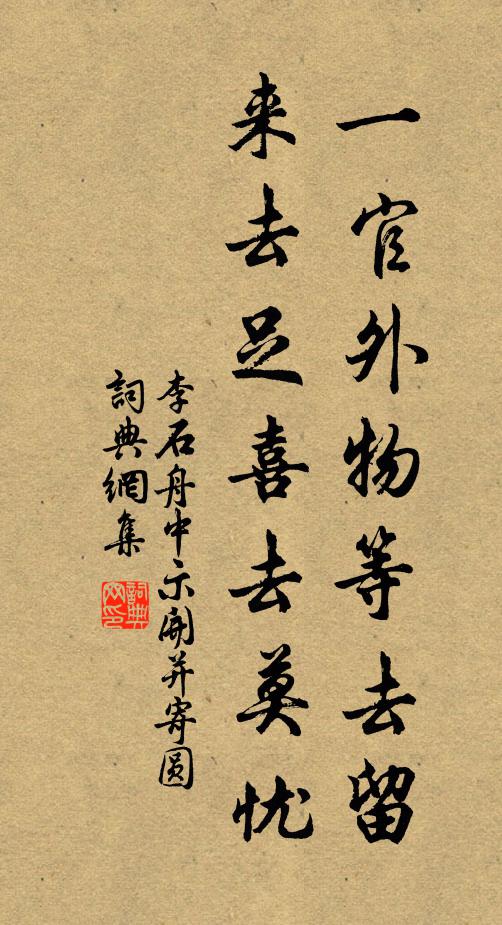 一官外物等去留
来去足喜去莫忧
李石舟中示開并寄圆
詞典網集
詞典
网印